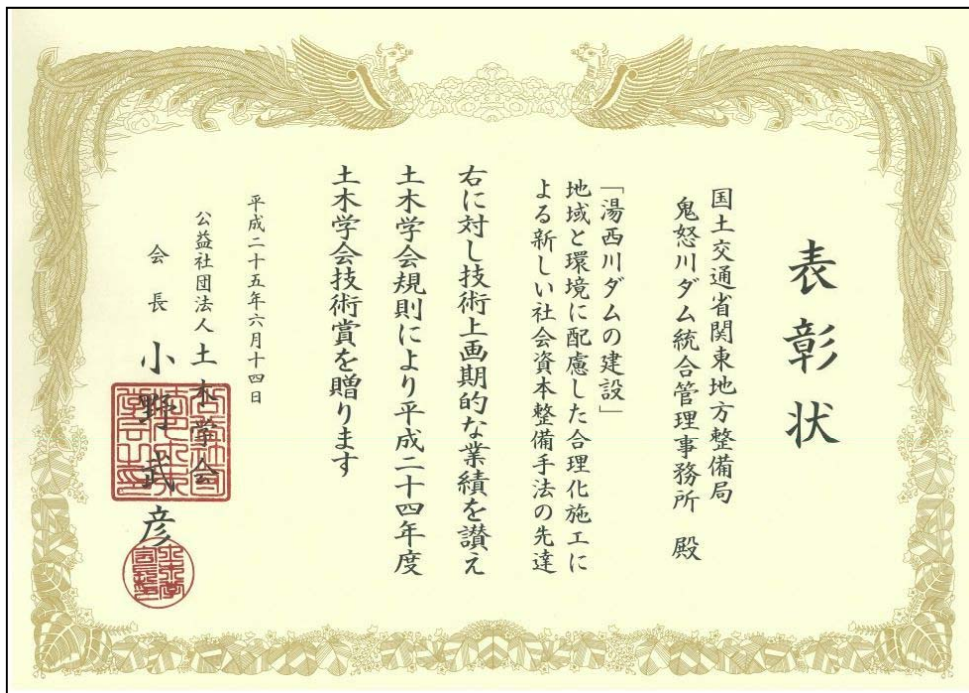 表彰状
国土交通省関東地方整備局
鬼怒川ダム統合管理事務所 殿
「湯西川ダムの建設」
地域と環境に配慮した合理化施工に
よる新しい社会資本整備手法の先達
右に対し技術上画期的な業績を讃え
土木学会規則により平成二十四年度
土木学会技術賞を贈ります
平成二十五年六月十四日
公益社団法人 土木学会
会長 小野武彦